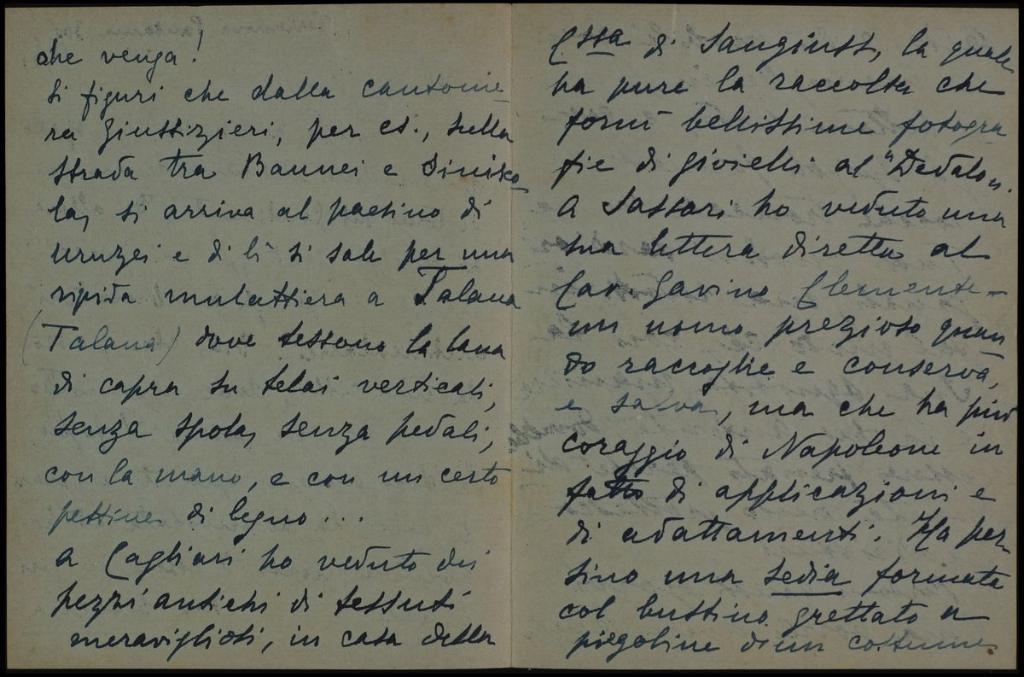 che venga!
Si figuri che dalla cantonie-
ra Giustizieri, per es., sulla
strada tra Baunei e Sinisco-
la, si arriva al paesino di
Urnzei e di lì si sale per una
ripida mulattiera a Talana
(Talana) dove tessono la lana
di capra su telai verticali,
senza spola, senza pedali,
con la mano, e con un certo
pettine di legno...
A Cagliari ho veduto dei
pezzi antichi di tessuti
meravigliosi, in casa della
Cssa di Sangiust, la quale
ha pure la raccolta che
fornì bellissime fotogra
fie di gioielli al "Dedalo".
A Sassari ho veduto una
sua lettera diretta al
Cav. Gavino Clemente-
un uomo prezioso quan
do raccoglie e conserva,
e salva, ma che ha più
coraggio di Napoleone in
fatto di applicazioni e
di adattamenti. Ha per-
sino una sedia formata
col bustino grettato a
piegoline di un costume